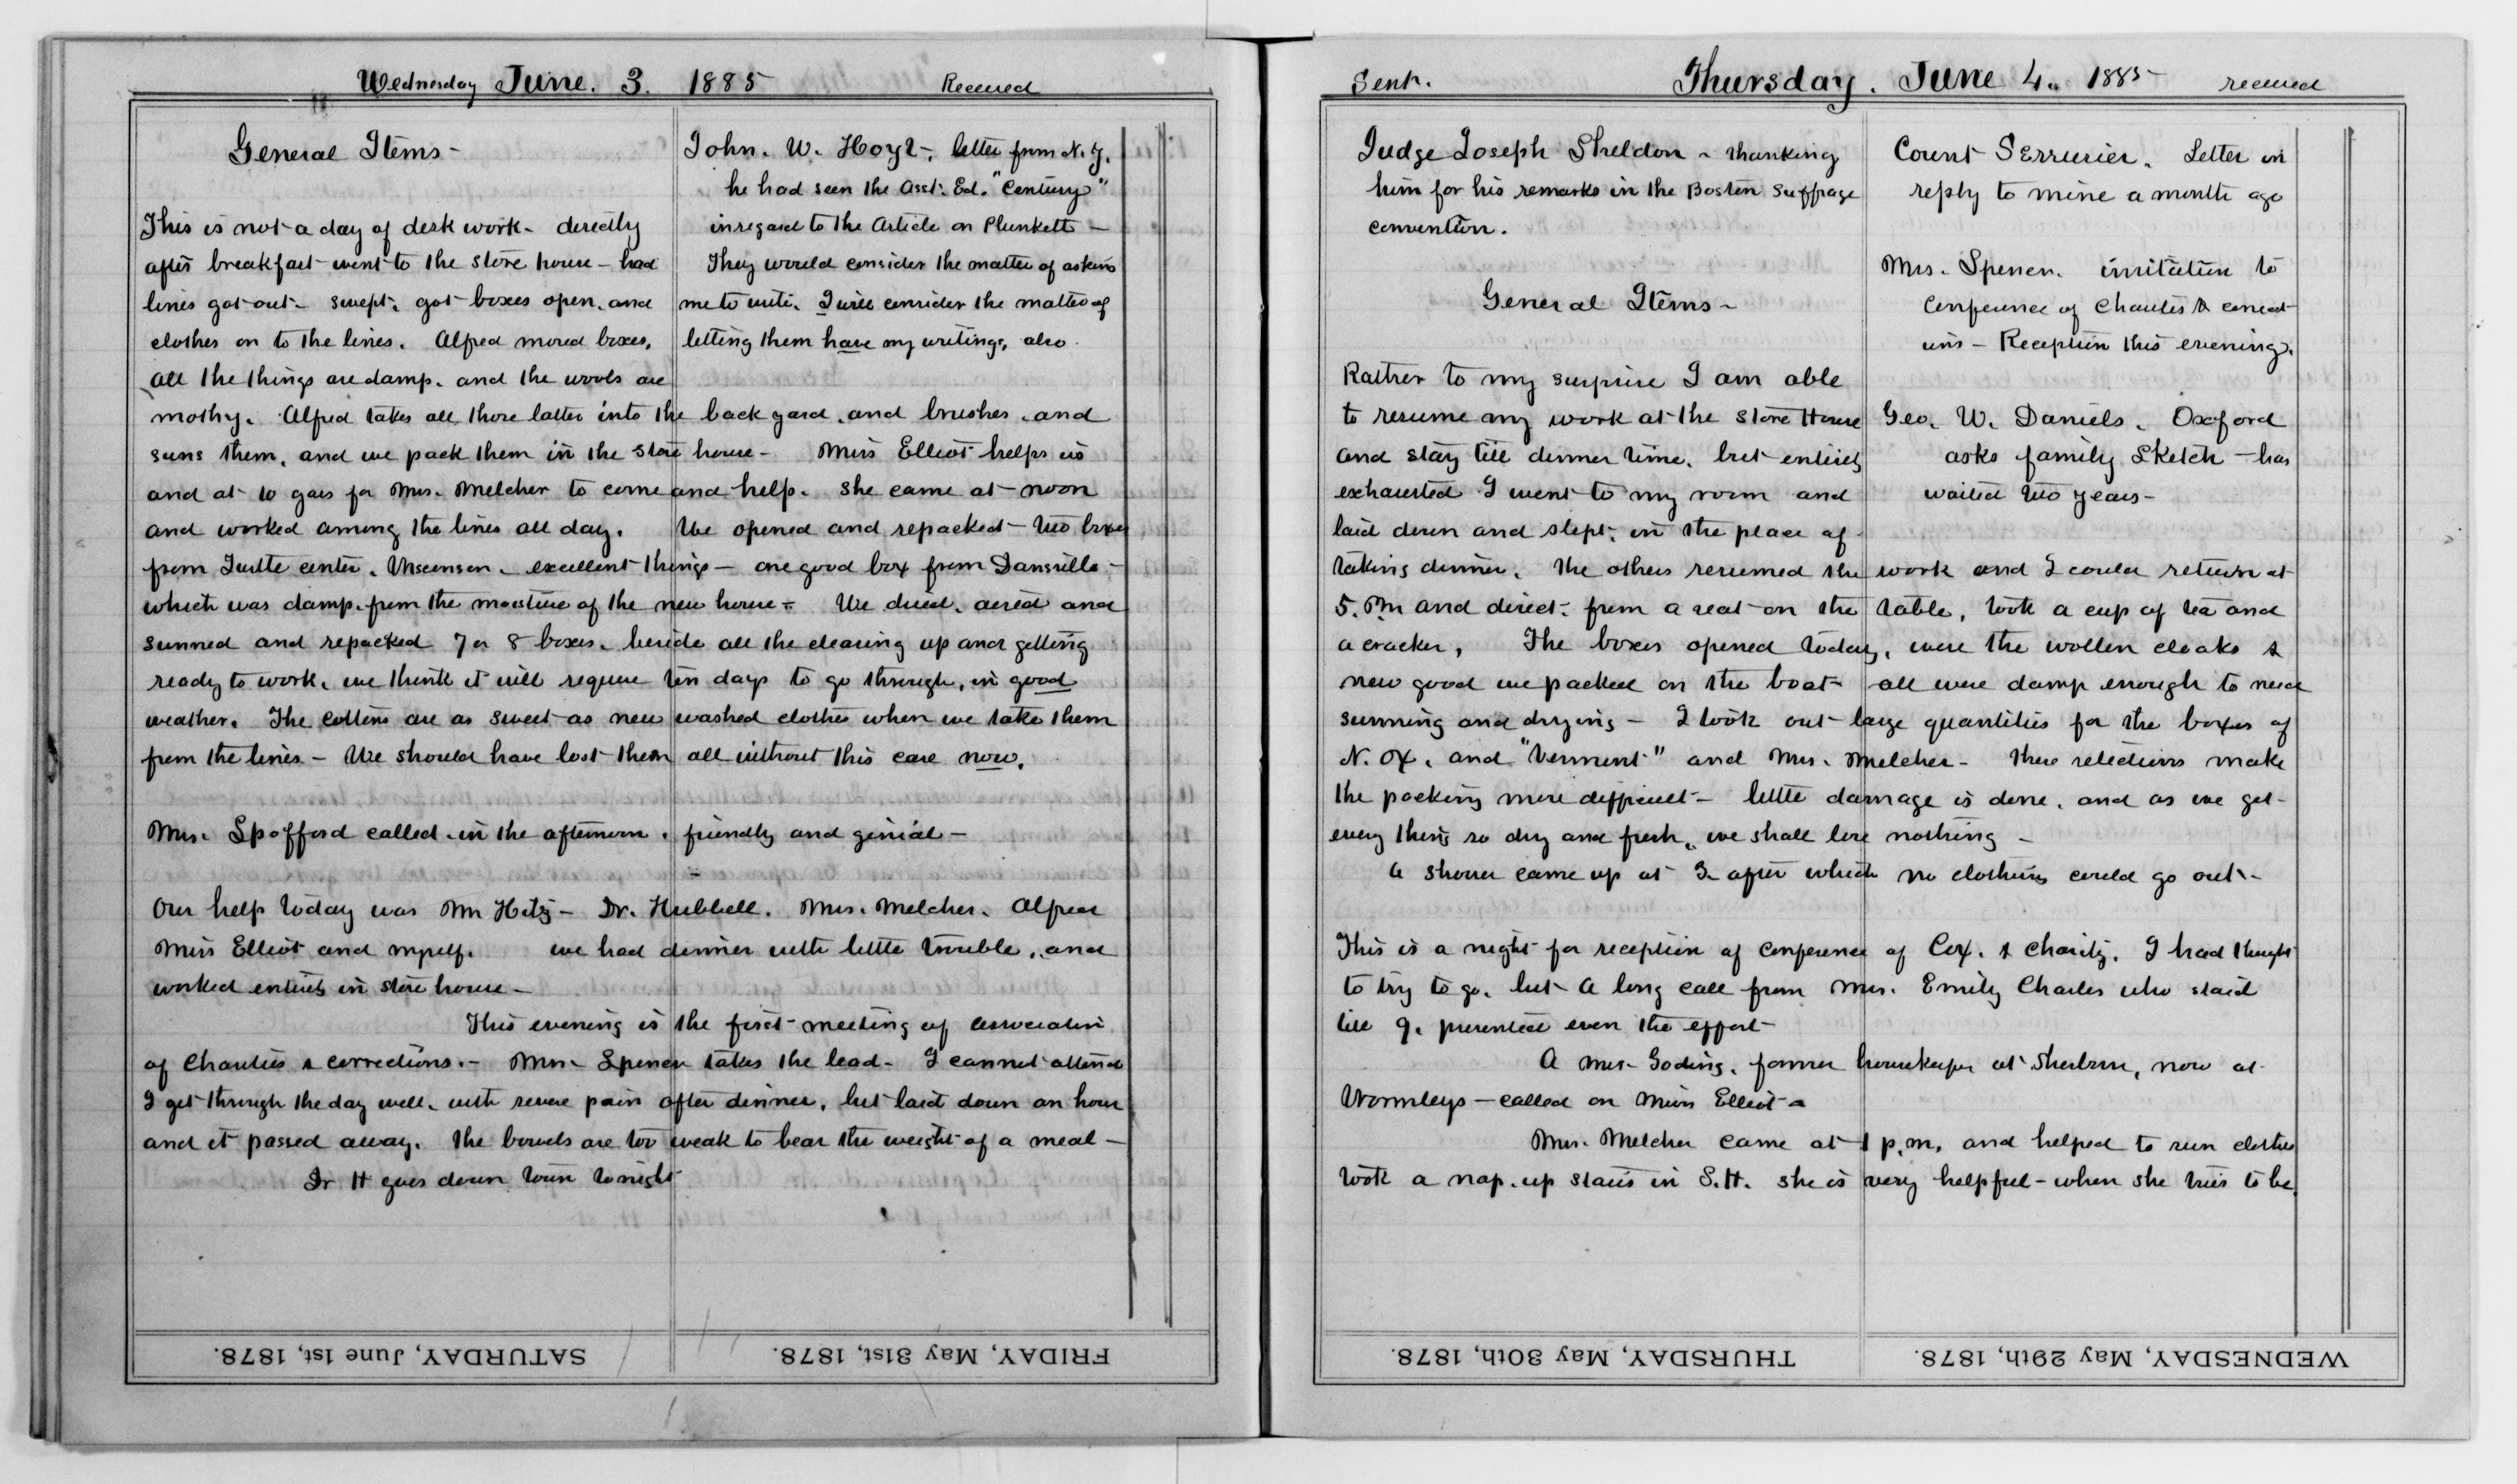 Wednesday June. 3. 1885 Received
General Items -
This is not a day of desk work - directly
after breakfast went to the store house - had
lines got out - swept, got boxes open, and
clothes on to the lines. Alfred moved boxes,
All the things are damp, and the wools are
John. W. Hoyt -, letter from N. Y.
he had seen the Asst. Ed. "Century"
in regard to the Article on Plunkett -
They would consider the matter of asking
me to write. I will consider the matter of
letting them have my writings, also.
mothy. Alfred takes all those latter into the back yard, and brushes, and
suns them, and we pack them in the store house - Miss Elliot helps us
and at 10 goes for Mrs. Melcher to come and help. She came at noon
and worked among the lines all day. We opened and repacked - two boxes
from Turtle center, - excellent things - one good box from Dansville -
which was damp from the moisture of the new house - We dried, aired and
sunned and repacked 7 or 8 boxes, beside all the clearing up and getting
ready to work, we think it will require ten days to go through, in good
weather. The cottons are as sweet as new washed clothes when we take them
from the lines - We should have lost them all without this care now.
Mrs. Spofford called in the afternoon, friendly and genial -
Our help today was Mr Hitz - Dr. Hubbell. Mrs. Melcher. Alfred
Miss Elliot and myself. we had dinner with little trouble, and
worked entirely in store house -
This evening is the first meeting of association
of Charities & corrections. - Mrs - Spencer takes the lead - I cannot attend
I get through the day well, with severe pain after dinner, but laid down an hour
and it passed away. The bowels are too weak to bear the weight of a meal -
Dr H goes down town tonight
SATURDAY, June 1st, 1878. FRIDAY, May 31st, 1878.
Sent. Thursday. June 4. 1885 received
Judge Joseph Sheldon - thanking
him for his remarks in the Boston Suffrage
convention.
General Items -
Rather to my surprise I am able
to resume my work at the Store House
and stay till dinner time, but entirely
exhausted I went to my room and
laid down and slept, in the place of
Count Serrurier. Letter in
reply to mine a month ago
Mrs. Spencer. invitation to
Conference of Charities & correct
ions - Reception this evening.
Geo. W. Daniels. Oxford
asks family Sketch - has
waited two years -
taking dinner. The others resumed the work and I could return at
5. Pm and direct from a seat on the table, took a cup of tea and
a cracker, The boxes opened today, were the wollen cloaks &
new good we packed on the boat - all were damp enough to need
sunning and drying - I took out large quantities for the boxes of
N. Ox. and "Vermont" and Mrs. Melcher - These selections make
the packing more difficult - little damage is done, and as we get
every thing so dry and fresh, we shall lose nothing -
A shower came up at 3 - after which no clothing could go out -
This is a night for reception of Conference of Cox. & Charity. I had thought
to try to go, but A long call from Mrs. Emily Charles who staid
till 9, prevented even the effort -
A Mrs - Goding, former housekeeper at Sherborn, now at
Wormleys - called on Miss Elliot -
Mrs. Melcher came at 1 p.m. and helped to sun clothes
took a nap, up stairs in S.H. she is very helpful - when she tries to be.
THURSDAY, May 30th, 1878. WEDNESDAY, May 29th, 1878.